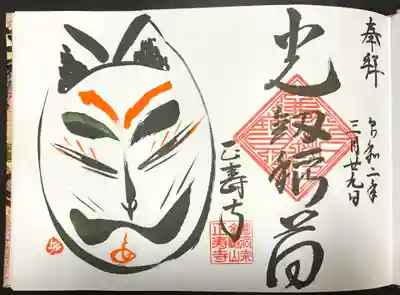 奉拝
令和二年
三月廿九日
光釼稲荷
正壽寺
正寿寺